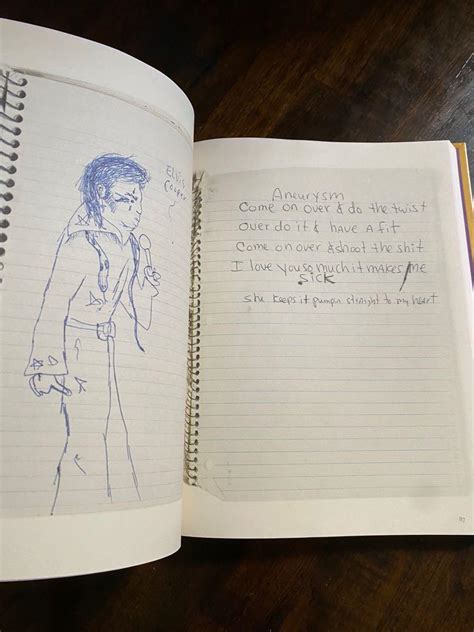 Elvis
Cooper
Aneurysm
Come on over & do the twist
Over do it & have A fit
Come on over & shoot the shit
I love you so much it makes me
SICK
she keeps it pumpin straight to my heart